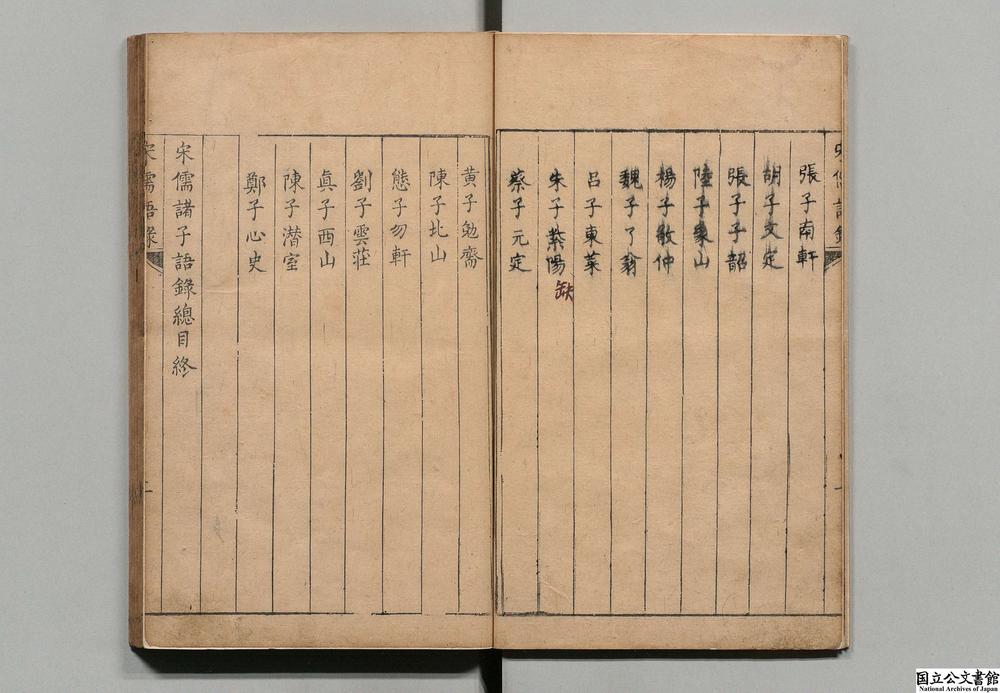 張子南軒
胡子文定
張子子韶
陸子象山
楊子敬仲
魏子了翁
呂子東萊
朱子紫陽 缺
蔡子元定
黃子勉齋
陳子北山
熊子勿軒
劉子雲莊
眞子西山
陳子潛室
鄭子心史
宋儒諸子語錄總目終
宋儒語錄
一
国立公文書館
National Archives of Japan